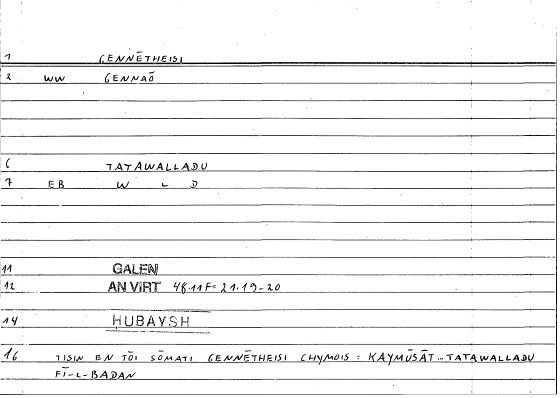 1 GENNĒTHEISI
2 WW GENNAŌ
6 TATAWALLADU
7 EB W L D
11 GALEN
12 AN VIRT 48.11F = 21.19-20
14 HUBAYSH
16 TISIN EN TŌI SŌMATI GENNĒTHEISI CHYMOIS : KAYMŪSĀT .. TATAWALLADU
FĪ-L-BADAN